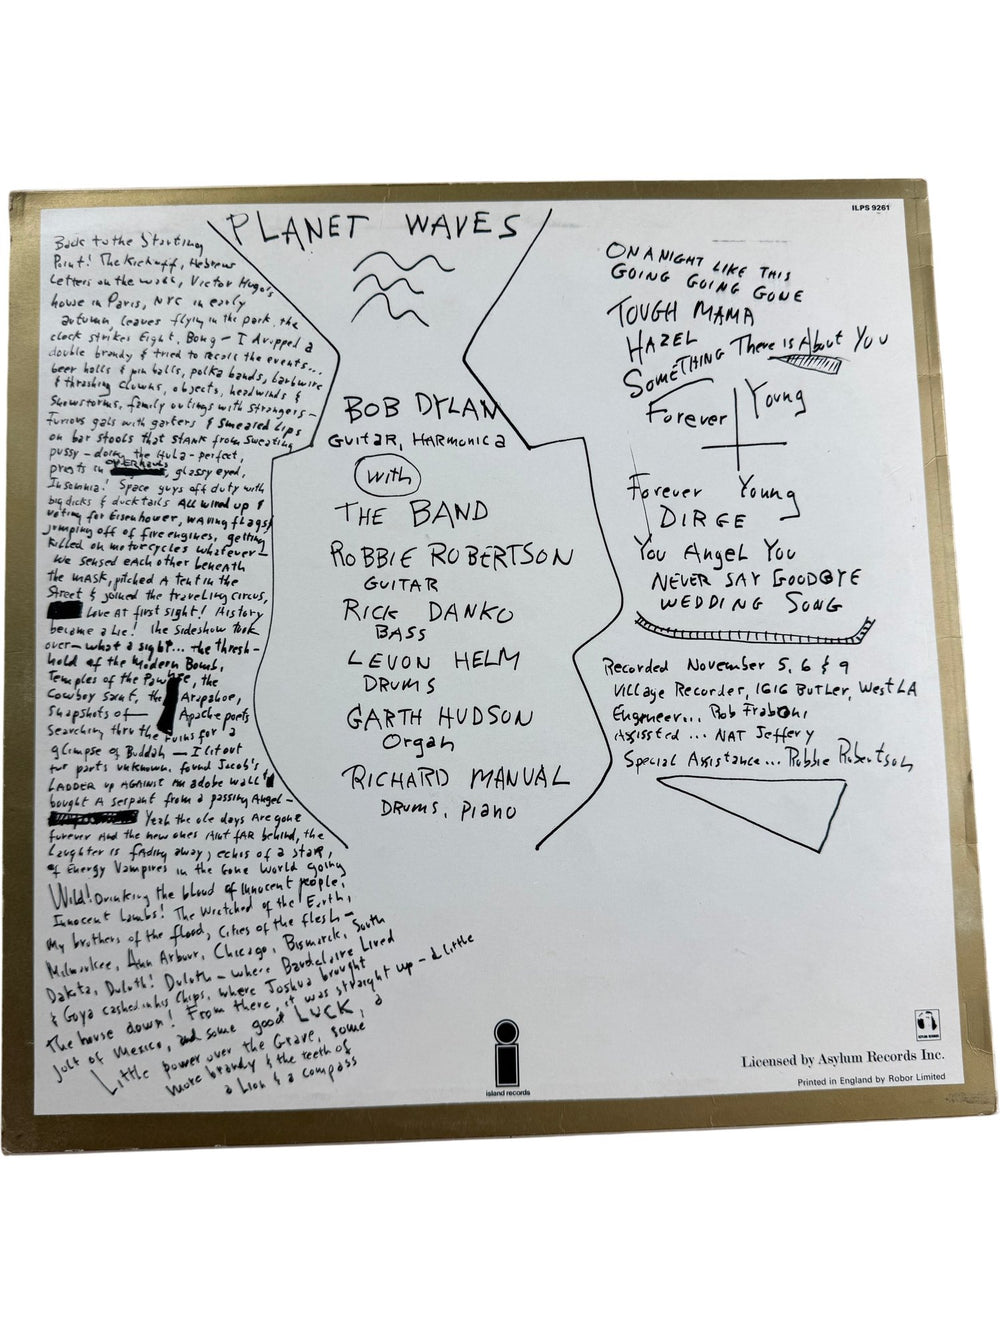 ILPS 9261
PLANET WAVES
Back to the Starting
Point! The Kickoff, Hebrew
Letters on the wall, Victor Hugo's
house in Paris, NYC in early
autumn, leaves flying in the park, the
clock strikes Eight, Bong — I dropped a
double brandy & tried to recall the events...
beer halls & pin balls, polka bands, barbwire
& thrashing clowns, objects, headwinds &
Snowstorms, family outings with strangers —
Furious gals with garters & smeared Lips
on bar stools that stank from sweating
pussy — doing the Hula — perfect,
priests in OVERHAULS, glassy eyed,
Insomnia! Space guys off duty with
big dicks & ducktails All wired up &
voting for Eisenhower, waving flags &
jumping off of fire engines, getting
killed on motorcycles whatever —
We sensed each other beneath
the MASK, pitched A tent in the
Street & joined the traveling circus,
Love AT first sight! History
became a Lie! The Sideshow Took
over — what a sight... the thresh-
hold of the Modern Bomb,
Temples of the Pawnee, the
Cowboy Saint, the Arapahoe,
Snapshots of — Apache poets
Searching thru the ruins for a
glimpse of Buddah — I lit out
for parts unknown, found Jacob's
LADDER up AGAINST An adobe wall &
bought A serpent from a passing Angel —
Yeah the ole days Are gone
forever And the new ones Aint fAR behind, the
Laughter is fAding away, echos of a staR,
of Energy Vampires in the Gone World going
Wild! Drinking the blood of Innocent people,
Innocent Lambs! The Wretched of the Earth,
My brothers of the flood, Cities of the flesh —
Milwaukee, Ann Arbour, Chicago, Bismarck, South
Dakota, Duluth! Duluth — where Baudelaire Lived
& Goya cashed in his Chips, where Joshua brought
The house down! From there, it was straight up — a Little
jolt of Mexico, and some good LUCK, a
Little power over the Grave, some
more brandy & the teeth of
a Lion & a compass
BOB DYLAN
GUITAR, HARMONICA
with
THE BAND
ROBBIE ROBERTSON
GUITAR
RICK DANKO
BASS
LEVON HELM
DRUMS
GARTH HUDSON
Organ
RICHARD MANUAL
DRUMS, Piano
ON A NIGHT LIKE THIS
GOING GOING GONE
TOUGH MAMA
HAZEL
SOMETHING There is About You
Forever Young
Forever Young
DIRGE
You Angel You
NEVER SAY GOODBYE
WEDDING SONG
Recorded November 5, 6 & 9
Village Recorder, 1616 Butler, West LA
Engineer... Rob Fraboni
Assissted ... NAT Jeffery
Special Assistance... Robbie Robertson
island records
ASYLUM RECORDS
Licensed by Asylum Records Inc.
Printed in England by Robor Limited